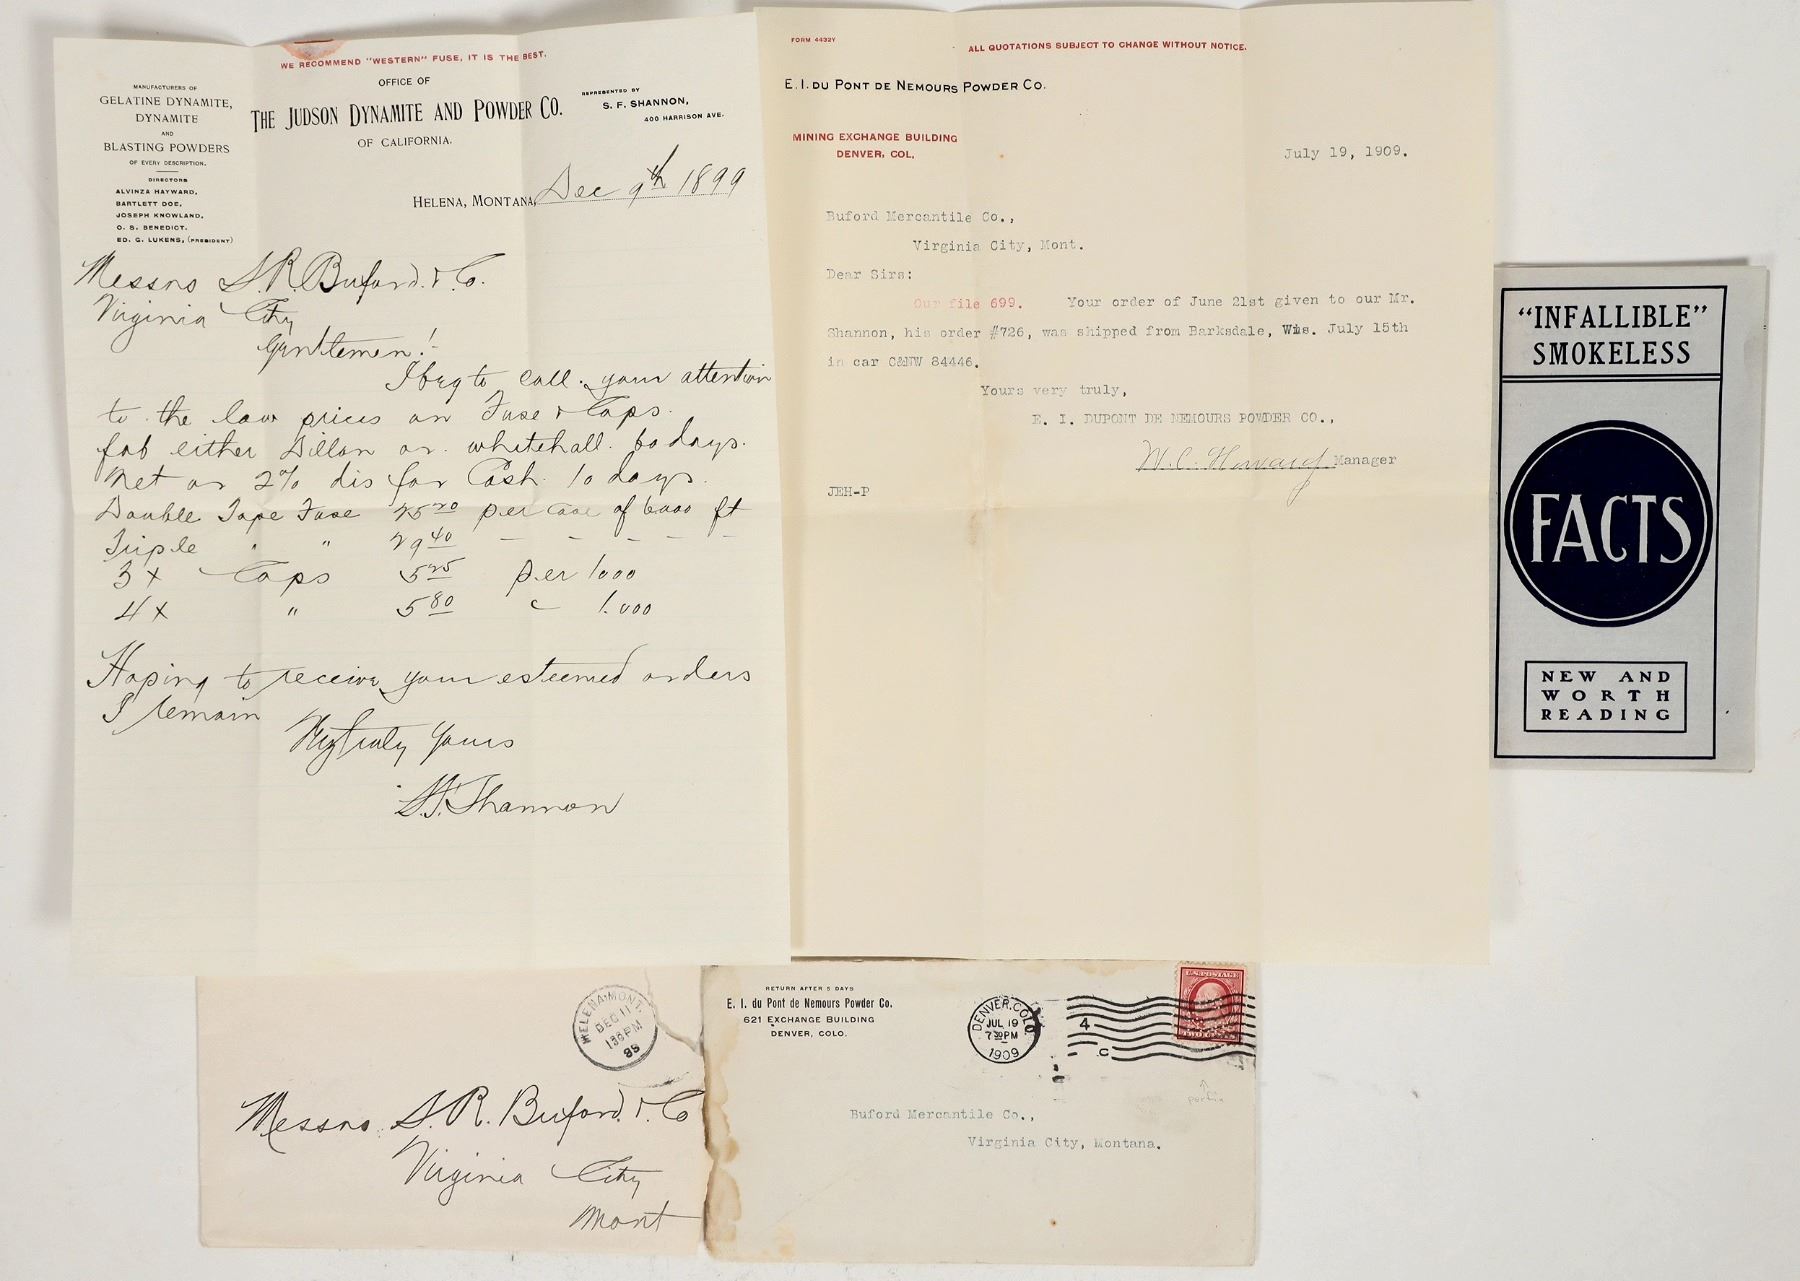 WE RECOMMEND "WESTERN" FUSE, IT IS THE BEST.
MANUFACTURERS OF
GELATINE DYNAMITE,
DYNAMITE
AND
BLASTING POWDERS
OF EVERY DESCRIPTION.
DIRECTORS
ALVINZA HAYWARD,
BARTLETT DOE,
JOSEPH KNOWLAND,
O. S. BENEDICT.
ED. G. LUKENS, (PRESIDENT)
OFFICE OF
THE JUDSON DYNAMITE AND POWDER CO.
OF CALIFORNIA.
REPRESENTED BY
S. F. SHANNON,
400 HARRISON AVE.
HELENA, MONTANA, Dec 9th 1899
Messrs S. R. Buford & Co.
Virginia City
Gentlemen!-
I beg to call your attention
to the low prices on Fuse & Caps.
fob either Dillon or whitehall. 60 days.
Net or 2% dis for Cash 10 days.
Double Tape Fuse 25 20 per case of 6000 ft
Triple " " 29 40 - - - - -
3x Caps 5 25 per 1000
4x " 5 80 " 1.000
Hoping to receive your esteemed orders
I remain
Very truly Yours
S. F. Shannon
FORM 4432Y
ALL QUOTATIONS SUBJECT TO CHANGE WITHOUT NOTICE.
E. I. DU PONT DE NEMOURS POWDER CO.
MINING EXCHANGE BUILDING
DENVER, COL,
July 19, 1909.
Buford Mercantile Co.,
Virginia City, Mont.
Dear Sirs:
Our file 699. Your order of June 21st given to our Mr.
Shannon, his order #726, was shipped from Barksdale, Wis. July 15th
in car C&NW 84446.
Yours very truly,
E. I. DUPONT DE NEMOURS POWDER CO.,
W. C. Howard Manager
JEH-P
"INFALLIBLE"
SMOKELESS
FACTS
NEW AND
WORTH
READING
HELENA, MONT.
DEC 11
1 30 PM
99
Messrs S. R. Buford & Co
Virginia City
Mont
RETURN AFTER 5 DAYS
E. I. du Pont de Nemours Powder Co.
621 EXCHANGE BUILDING
DENVER, COLO.
DENVER, COLO.
JUL 19
7 30 PM
1909
4
C
U.S. POSTAGE
Buford Mercantile Co.,
Virginia City, Montana.